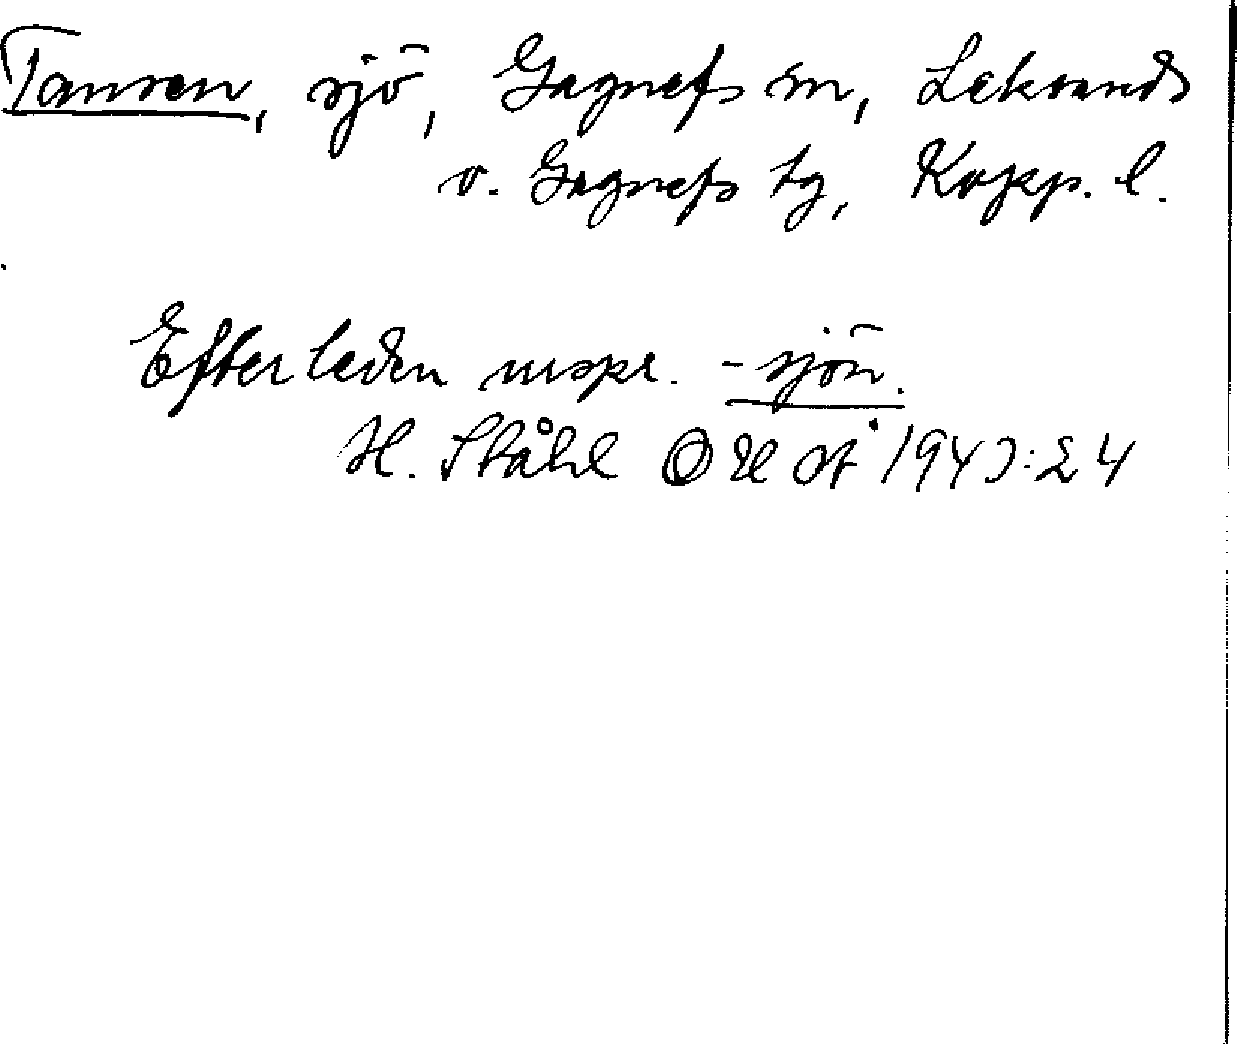 Tansen, sjö, Gagnefs sn, Leksands
o. Gagnefs tg, Kopp. l.
Efterleden urspr. -sjön.
H. Ståhl OUÅ 194 :24